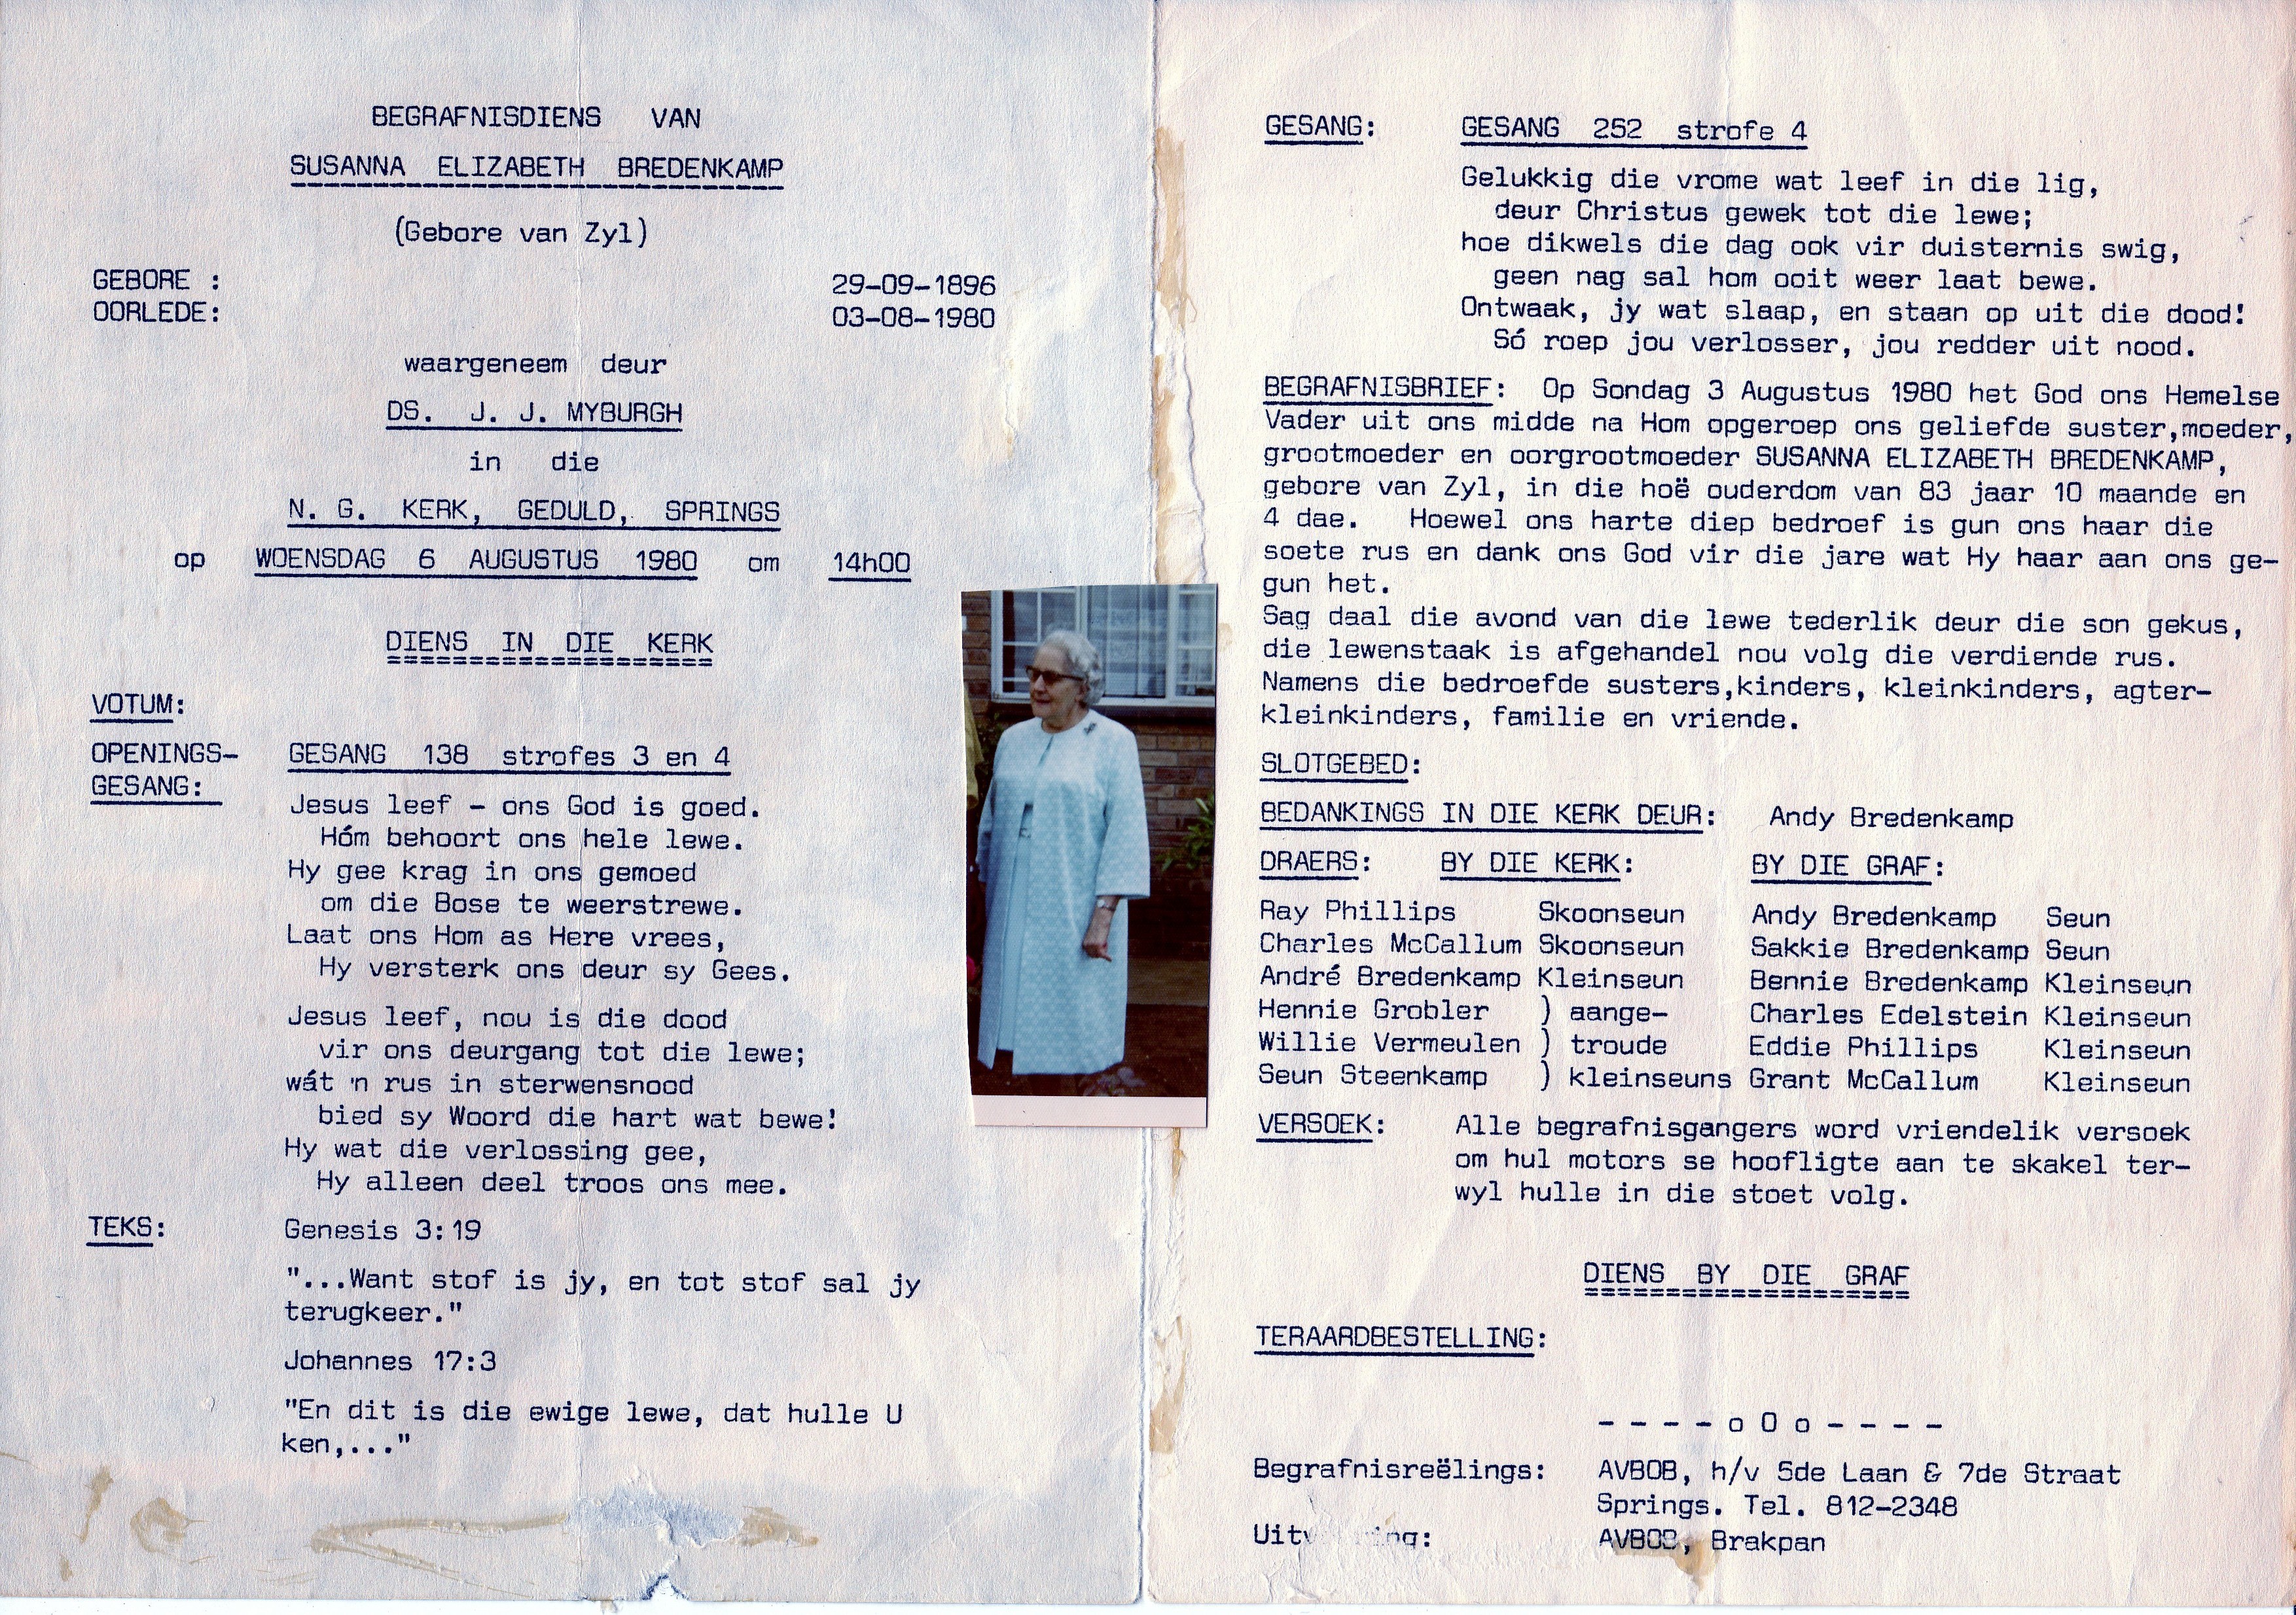 BEGRAFNISDIENS VAN
SUSANNA ELIZABETH BREDENKAMP
(Gebore van Zyl)
GEBORE : 29-09-1896
OORLEDE: 03-08-1980
waargeneem deur
DS. J. J. MYBURGH
in die
N. G. KERK, GEDULD, SPRINGS
op WOENSDAG 6 AUGUSTUS 1980 om 14h00
DIENS IN DIE KERK
VOTUM:
OPENINGS- GESANG 138 strofes 3 en 4
GESANG:
Jesus leef - ons God is goed.
Hóm behoort ons hele lewe.
Hy gee krag in ons gemoed
om die Bose te weerstrewe.
Laat ons Hom as Here vrees,
Hy versterk ons deur sy Gees.
Jesus leef, nou is die dood
vir ons deurgang tot die lewe;
wát 'n rus in sterwensnood
bied sy Woord die hart wat bewe!
Hy wat die verlossing gee,
Hy alleen deel troos ons mee.
TEKS: Genesis 3:19
"...Want stof is jy, en tot stof sal jy
terugkeer."
Johannes 17:3
"En dit is die ewige lewe, dat hulle U
ken,..."
GESANG: GESANG 252 strofe 4
Gelukkig die vrome wat leef in die lig,
deur Christus gewek tot die lewe;
hoe dikwels die dag ook vir duisternis swig,
geen nag sal hom ooit weer laat bewe.
Ontwaak, jy wat slaap, en staan op uit die dood!
Só roep jou verlosser, jou redder uit nood.
BEGRAFNISBRIEF: Op Sondag 3 Augustus 1980 het God ons Hemelse
Vader uit ons midde na Hom opgeroep ons geliefde suster,moeder,
grootmoeder en oorgrootmoeder SUSANNA ELIZABETH BREDENKAMP,
gebore van Zyl, in die hoë ouderdom van 83 jaar 10 maande en
4 dae. Hoewel ons harte diep bedroef is gun ons haar die
soete rus en dank ons God vir die jare wat Hy haar aan ons ge-
gun het.
Sag daal die avond van die lewe tederlik deur die son gekus,
die lewenstaak is afgehandel nou volg die verdiende rus.
Namens die bedroefde susters,kinders, kleinkinders, agter-
kleinkinders, familie en vriende.
SLOTGEBED:
BEDANKINGS IN DIE KERK DEUR: Andy Bredenkamp
DRAERS: BY DIE KERK: BY DIE GRAF:
Ray Phillips Skoonseun Andy Bredenkamp Seun
Charles McCallum Skoonseun Sakkie Bredenkamp Seun
André Bredenkamp Kleinseun Bennie Bredenkamp Kleinseun
Hennie Grobler ) aange- Charles Edelstein Kleinseun
Willie Vermeulen ) troude Eddie Phillips Kleinseun
Seun Steenkamp ) kleinseuns Grant McCallum Kleinseun
VERSOEK: Alle begrafnisgangers word vriendelik versoek
om hul motors se hoofligte aan te skakel ter-
wyl hulle in die stoet volg.
DIENS BY DIE GRAF
TERAARDBESTELLING:
- - - - o O o - - - -
Begrafnisreëlings: AVBOB, h/v 5de Laan & 7de Straat
Springs. Tel. 812-2348
AVBOB, Brakpan